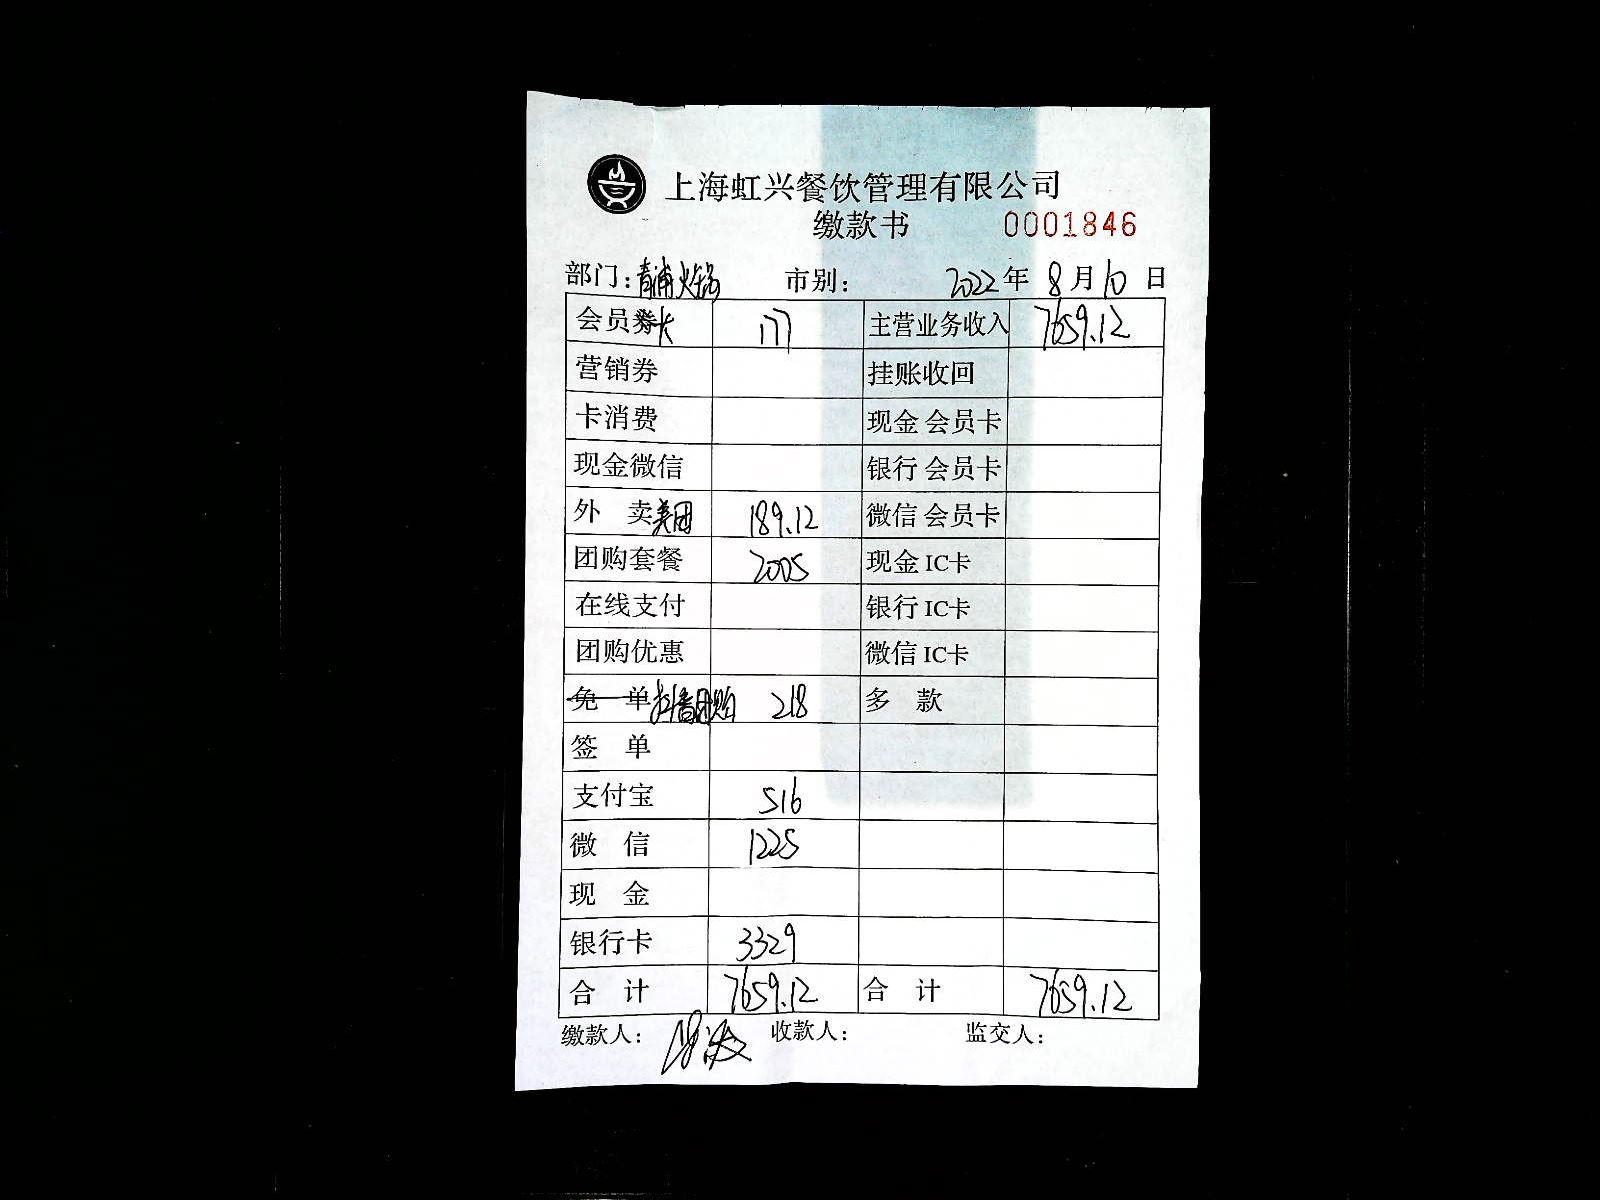 上海虹兴餐饮管理有限公司
缴款书 0001846
部门：青浦火锅 市别： 2022年8月10日
会员卡 177 主营业务收入 7659.12
营销券 挂账收回
卡消费 现金 会员卡
现金微信 银行 会员卡
外 卖美团 189.12 微信 会员卡
团购套餐 2005 现金 IC卡
在线支付 银行 IC卡
团购优惠 微信 IC卡
免 单 抖音团购 218 多 款
签 单
支付宝 516
微 信 1225
现 金
银行卡 3329
合 计 7659.12 合 计 7659.12
缴款人： 收款人： 监交人：